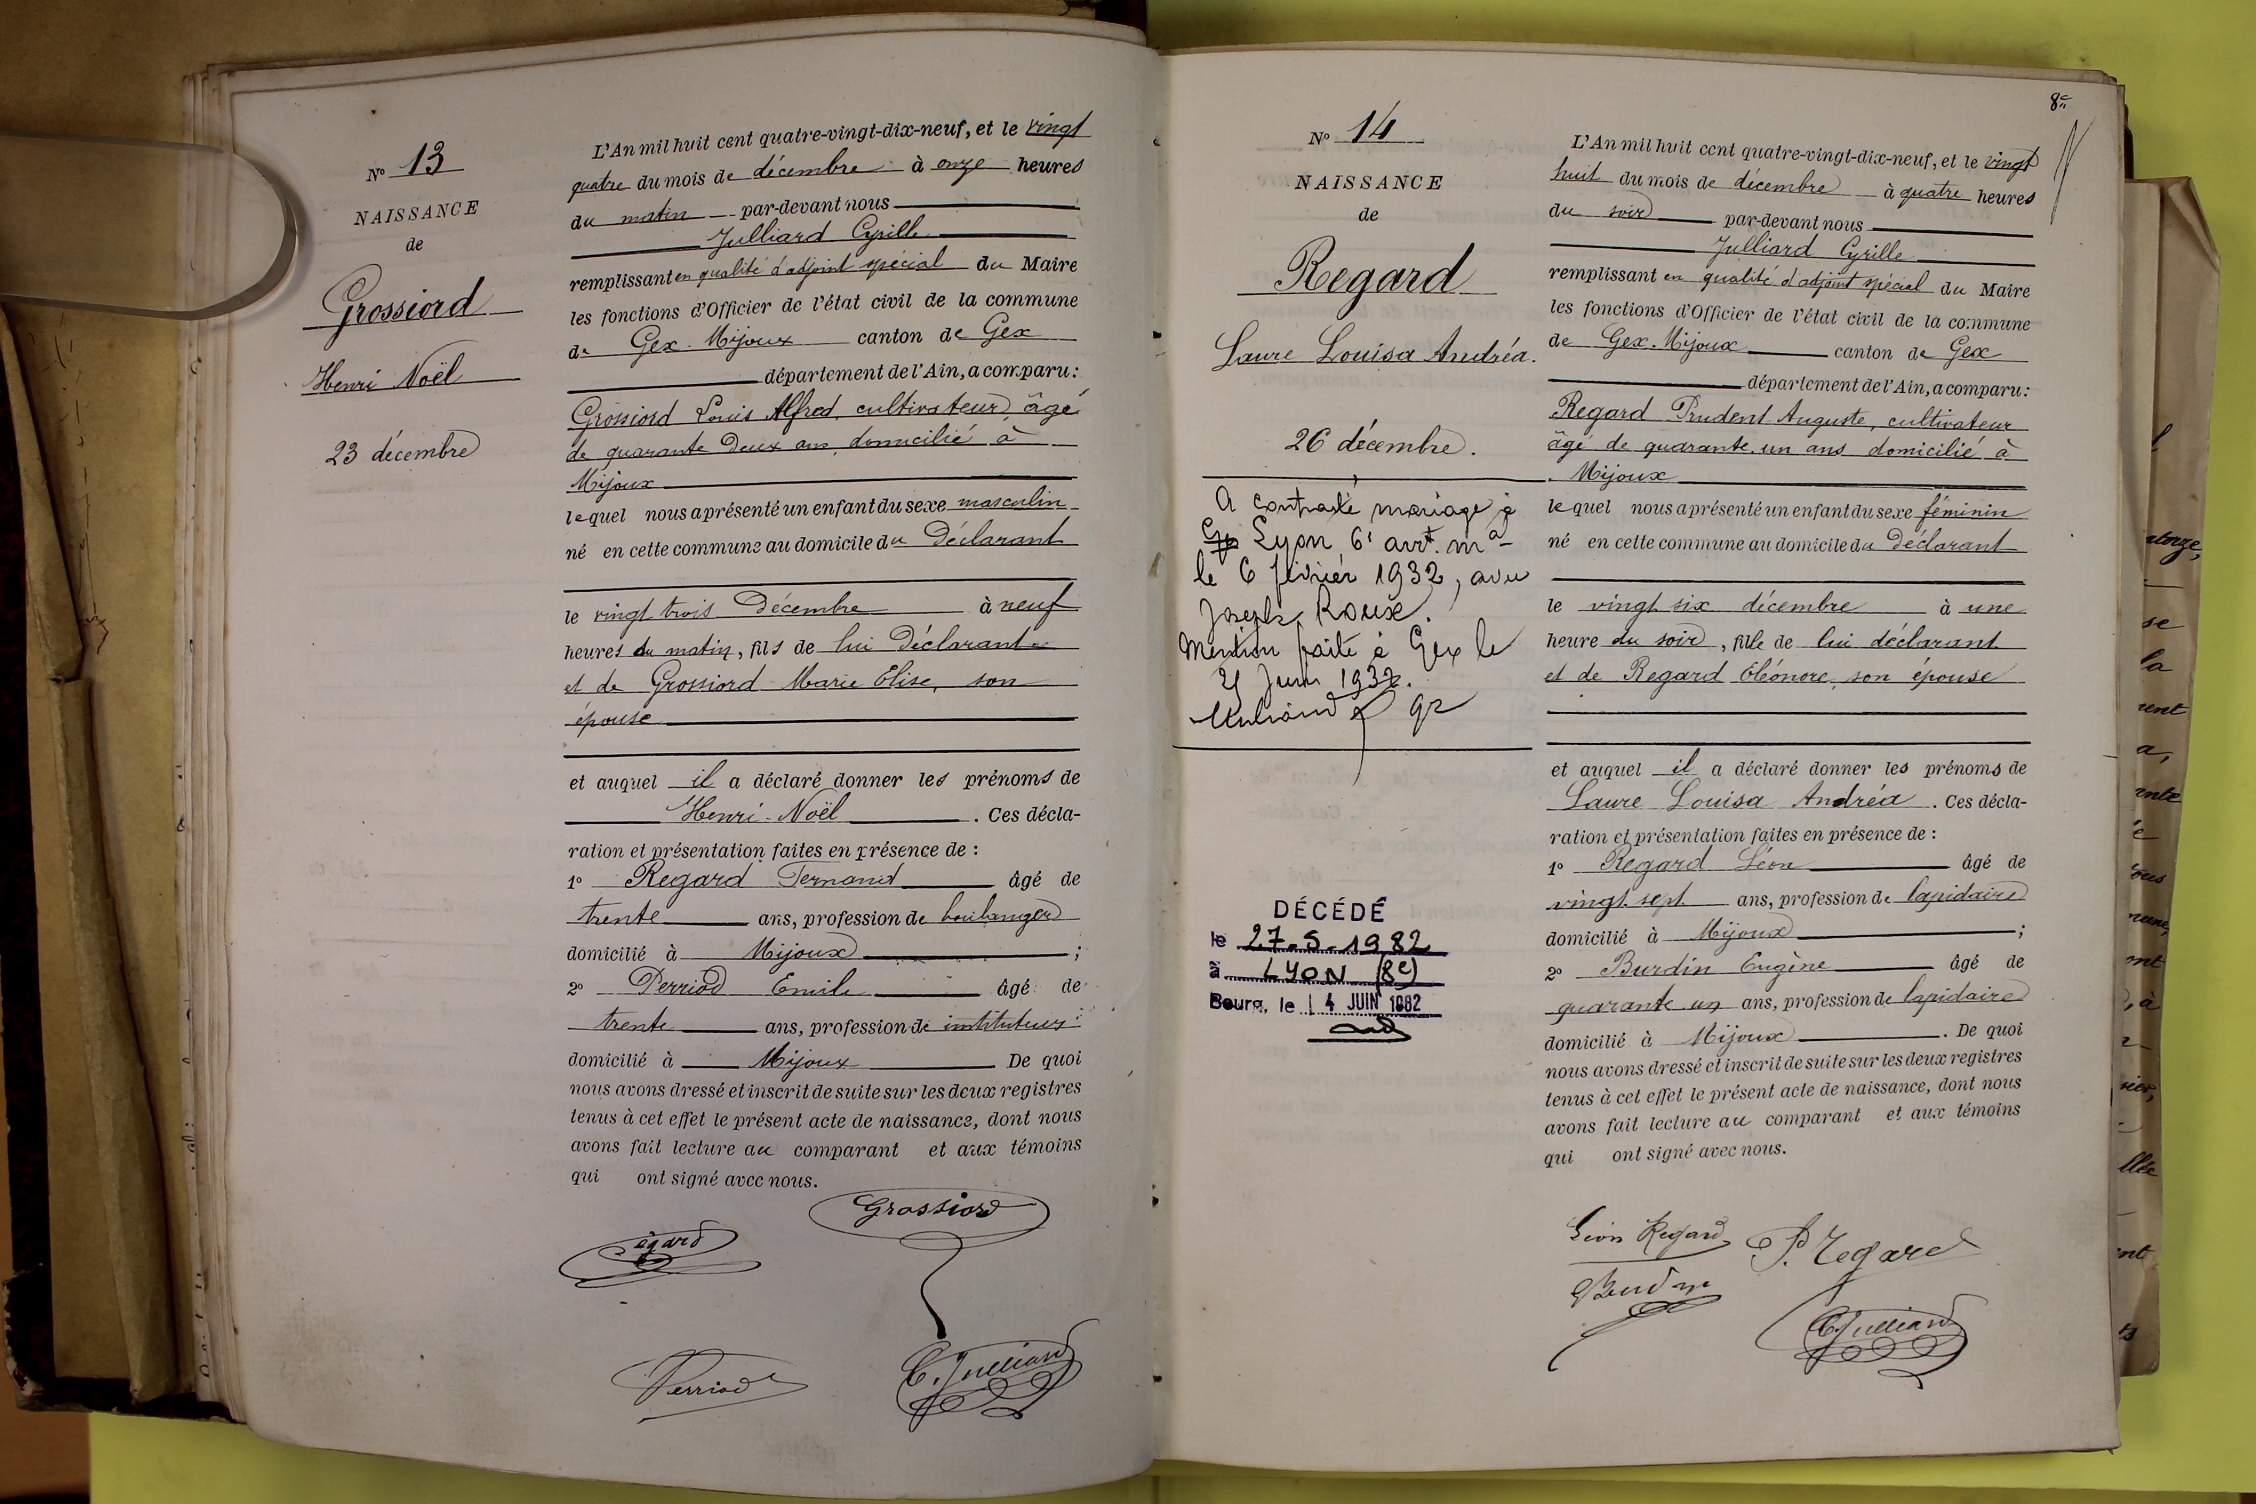 N° 13
NAISSANCE
de
Grossiord
Henri Noël
23 décembre
L'An mil huit cent quatre-vingt-dix-neuf, et le vingt
quatre du mois de décembre à onze heures
du matin par-devant nous
Julliard Cyrille
remplissant en qualité d'adjoint spécial du Maire
les fonctions d'Officier de l'état civil de la commune
de Gex-Mijoux canton de Gex
département de l'Ain, a comparu:
Grossiord Louis Alfred, cultivateur âgé
de quarante deux ans, domicilié à
Mijoux
lequel nous a présenté un enfant du sexe masculin
né en cette commune au domicile du Déclarant
le vingt trois Décembre à neuf
heures du matin, fils de lui Déclarant
et de Grossiord Marie Elise, son
épouse
et auquel il a déclaré donner les prénoms de
Henri-Noël. Ces décla-
ration et présentation faites en présence de :
1° Regard Fernand âgé de
trente ans, profession de boulanger
domicilié à Mijoux ;
2° Perriod Emile âgé de
trente ans, profession de instituteur
domicilié à Mijoux De quoi
nous avons dressé et inscrit de suite sur les deux registres
tenus à cet effet le présent acte de naissance, dont nous
avons fait lecture au comparant et aux témoins
qui ont signé avec nous.
Grossiord
Regard
Perriod
C. Julliard
8e
N° 14
NAISSANCE
de
Regard
Laure Louisa Andréa.
26 décembre.
A contracté mariage à
Lyon, 6e arrt. ma
le 6 février 1932, avec
Joseph Roux.
Mention faite à Gex le
21 Juin 1932.
DÉCÉDÉ
le 27-5-1982
à LYON (8e)
Bourg, le 14 JUIN 1982
L'An mil huit cent quatre-vingt-dix-neuf, et le vingt
huit du mois de décembre à quatre heures
du soir par-devant nous
Julliard Cyrille
remplissant en qualité d'adjoint spécial du Maire
les fonctions d'Officier de l'état civil de la commune
de Gex-Mijoux canton de Gex
département de l'Ain, a comparu:
Regard Prudent Auguste, cultivateur
âgé de quarante un ans domicilié à
Mijoux
lequel nous a présenté un enfant du sexe féminin
né en cette commune au domicile du déclarant
le vingt six décembre à une
heure du soir, fille de lui déclarant
et de Regard Eléonore, son épouse
et auquel il a déclaré donner les prénoms de
Laure Louisa Andréa. Ces décla-
ration et présentation faites en présence de :
1° Regard Léon âgé de
vingt sept ans, profession de lapidaire
domicilié à Mijoux ;
2° Burdin Eugène âgé de
quarante un ans, profession de lapidaire
domicilié à Mijoux. De quoi
nous avons dressé et inscrit de suite sur les deux registres
tenus à cet effet le présent acte de naissance, dont nous
avons fait lecture au comparant et aux témoins
qui ont signé avec nous.
Léon Regard
P. Regard
C. Julliard